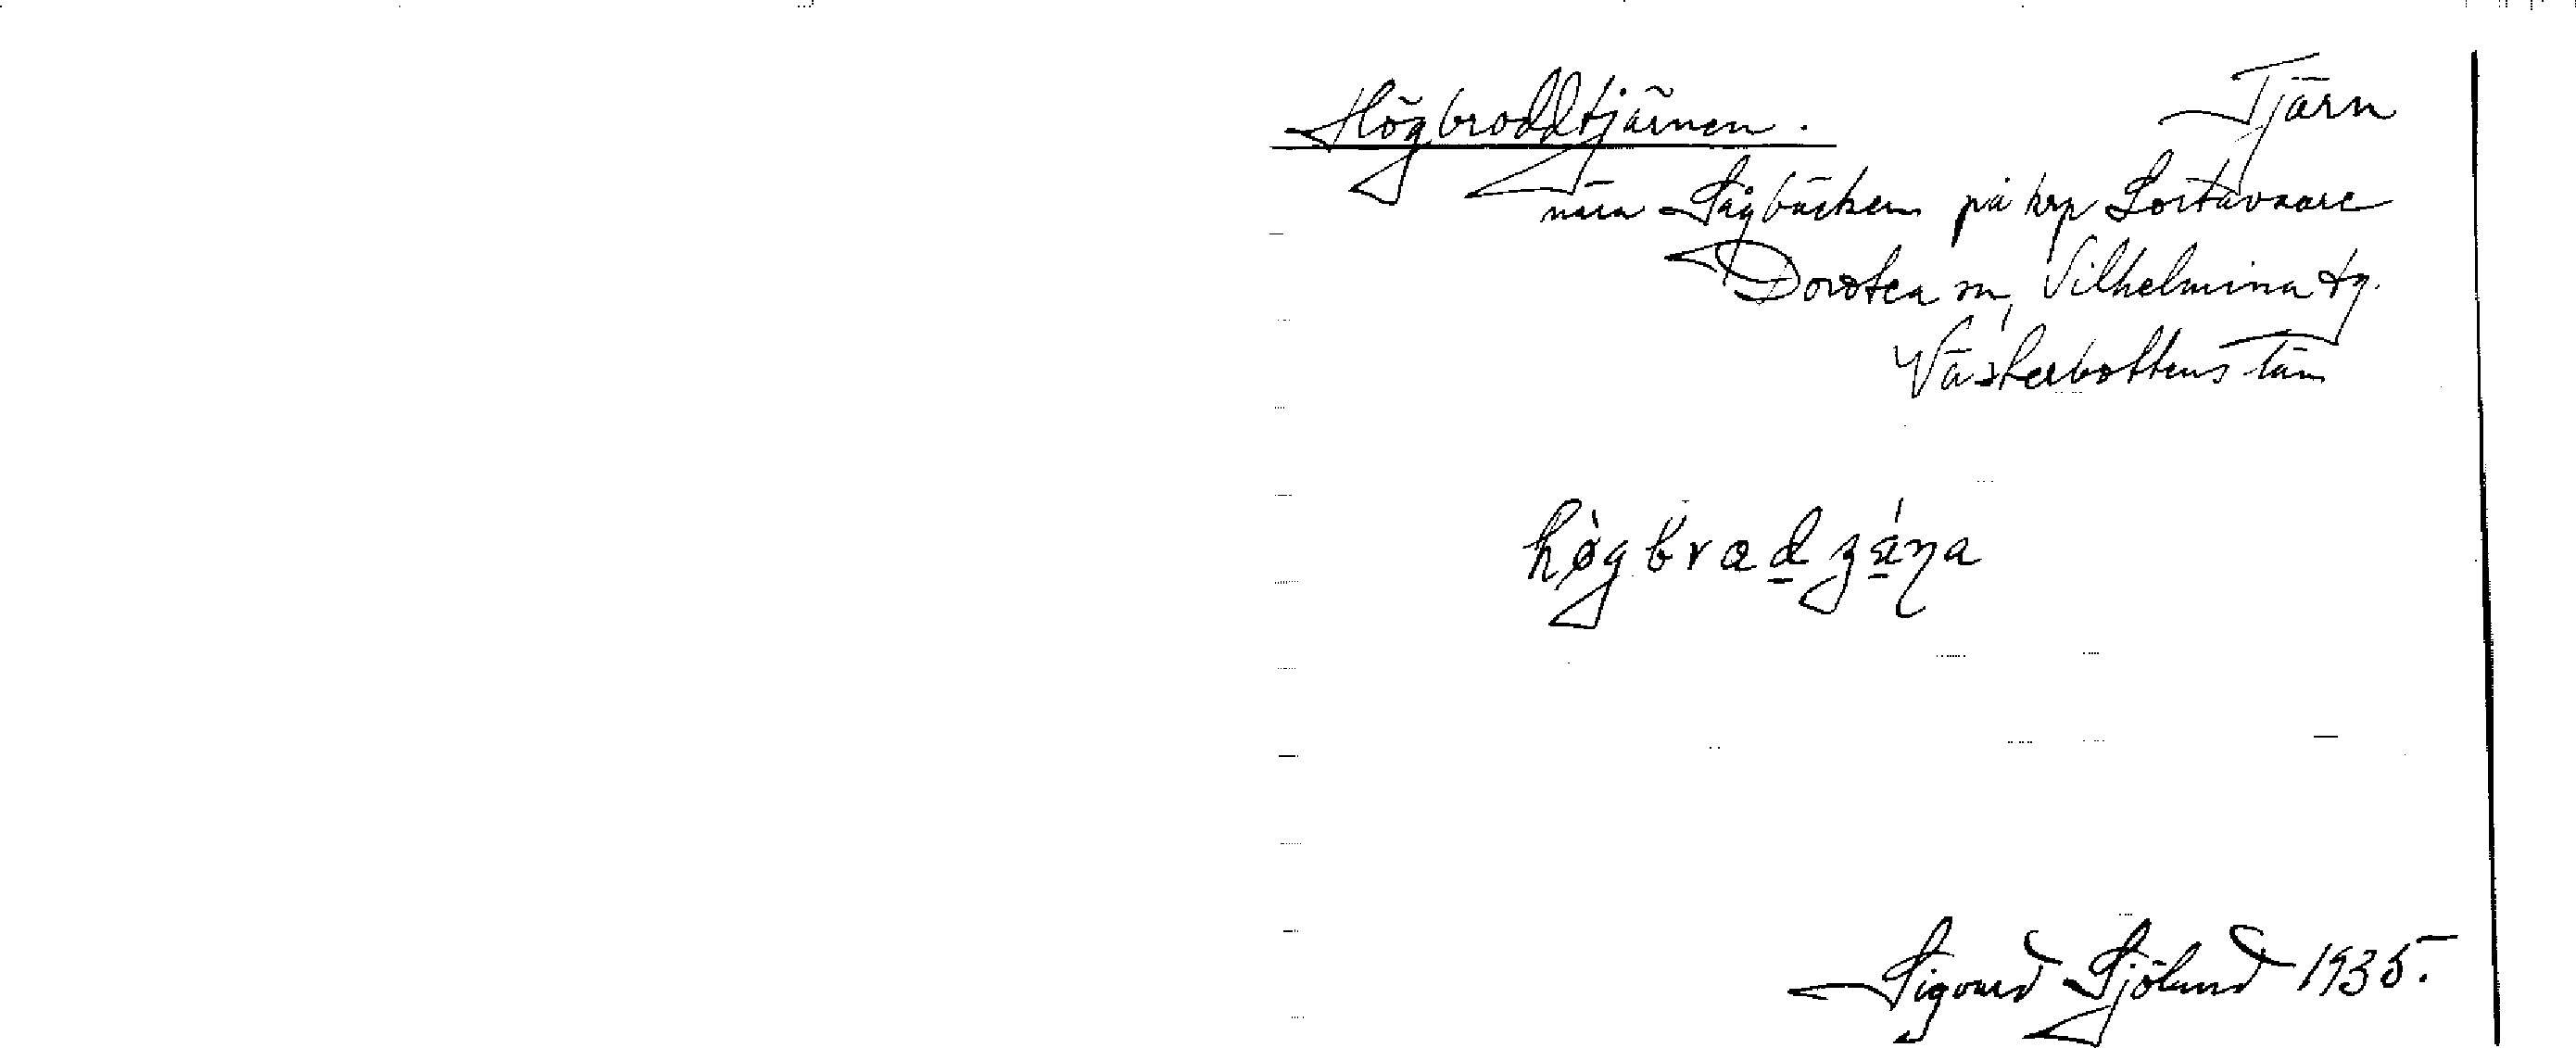 Högbroddtjärnen. Tjärn
nära Sågbäcken på krp Lortavaare
Dorotea sn, Vilhelmina tg.
Västerbottens län
høgbrad
Sigvard Sjölund 1935.